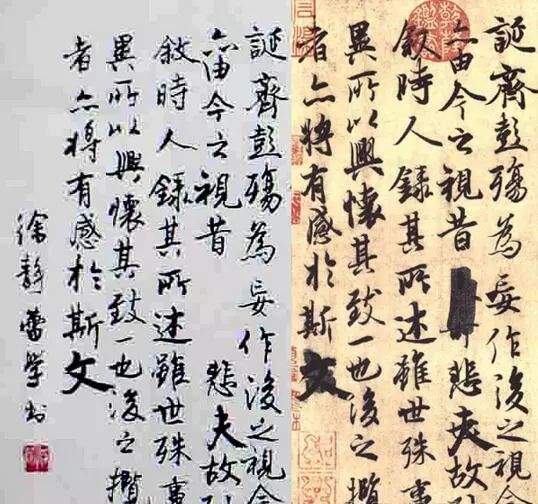 誕齊彭殤為妄作後之視今
亦由今之視昔悲夫故列
敘時人錄其所述雖世殊事
異所以興懷其致一也後之攬
者亦將有感於斯文
徐靜蕾學書
誕齊彭殤為妄作後之視今
亦由今之視昔悲夫故列
敘時人錄其所述雖世殊事
異所以興懷其致一也後之攬
者亦將有感於斯文